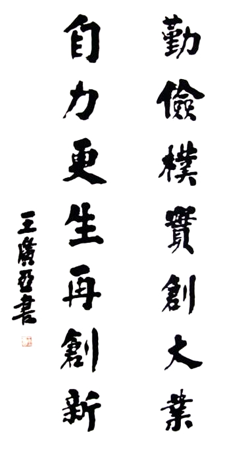 勤儉樸實創大業
自力更生再創新
王廣亞書